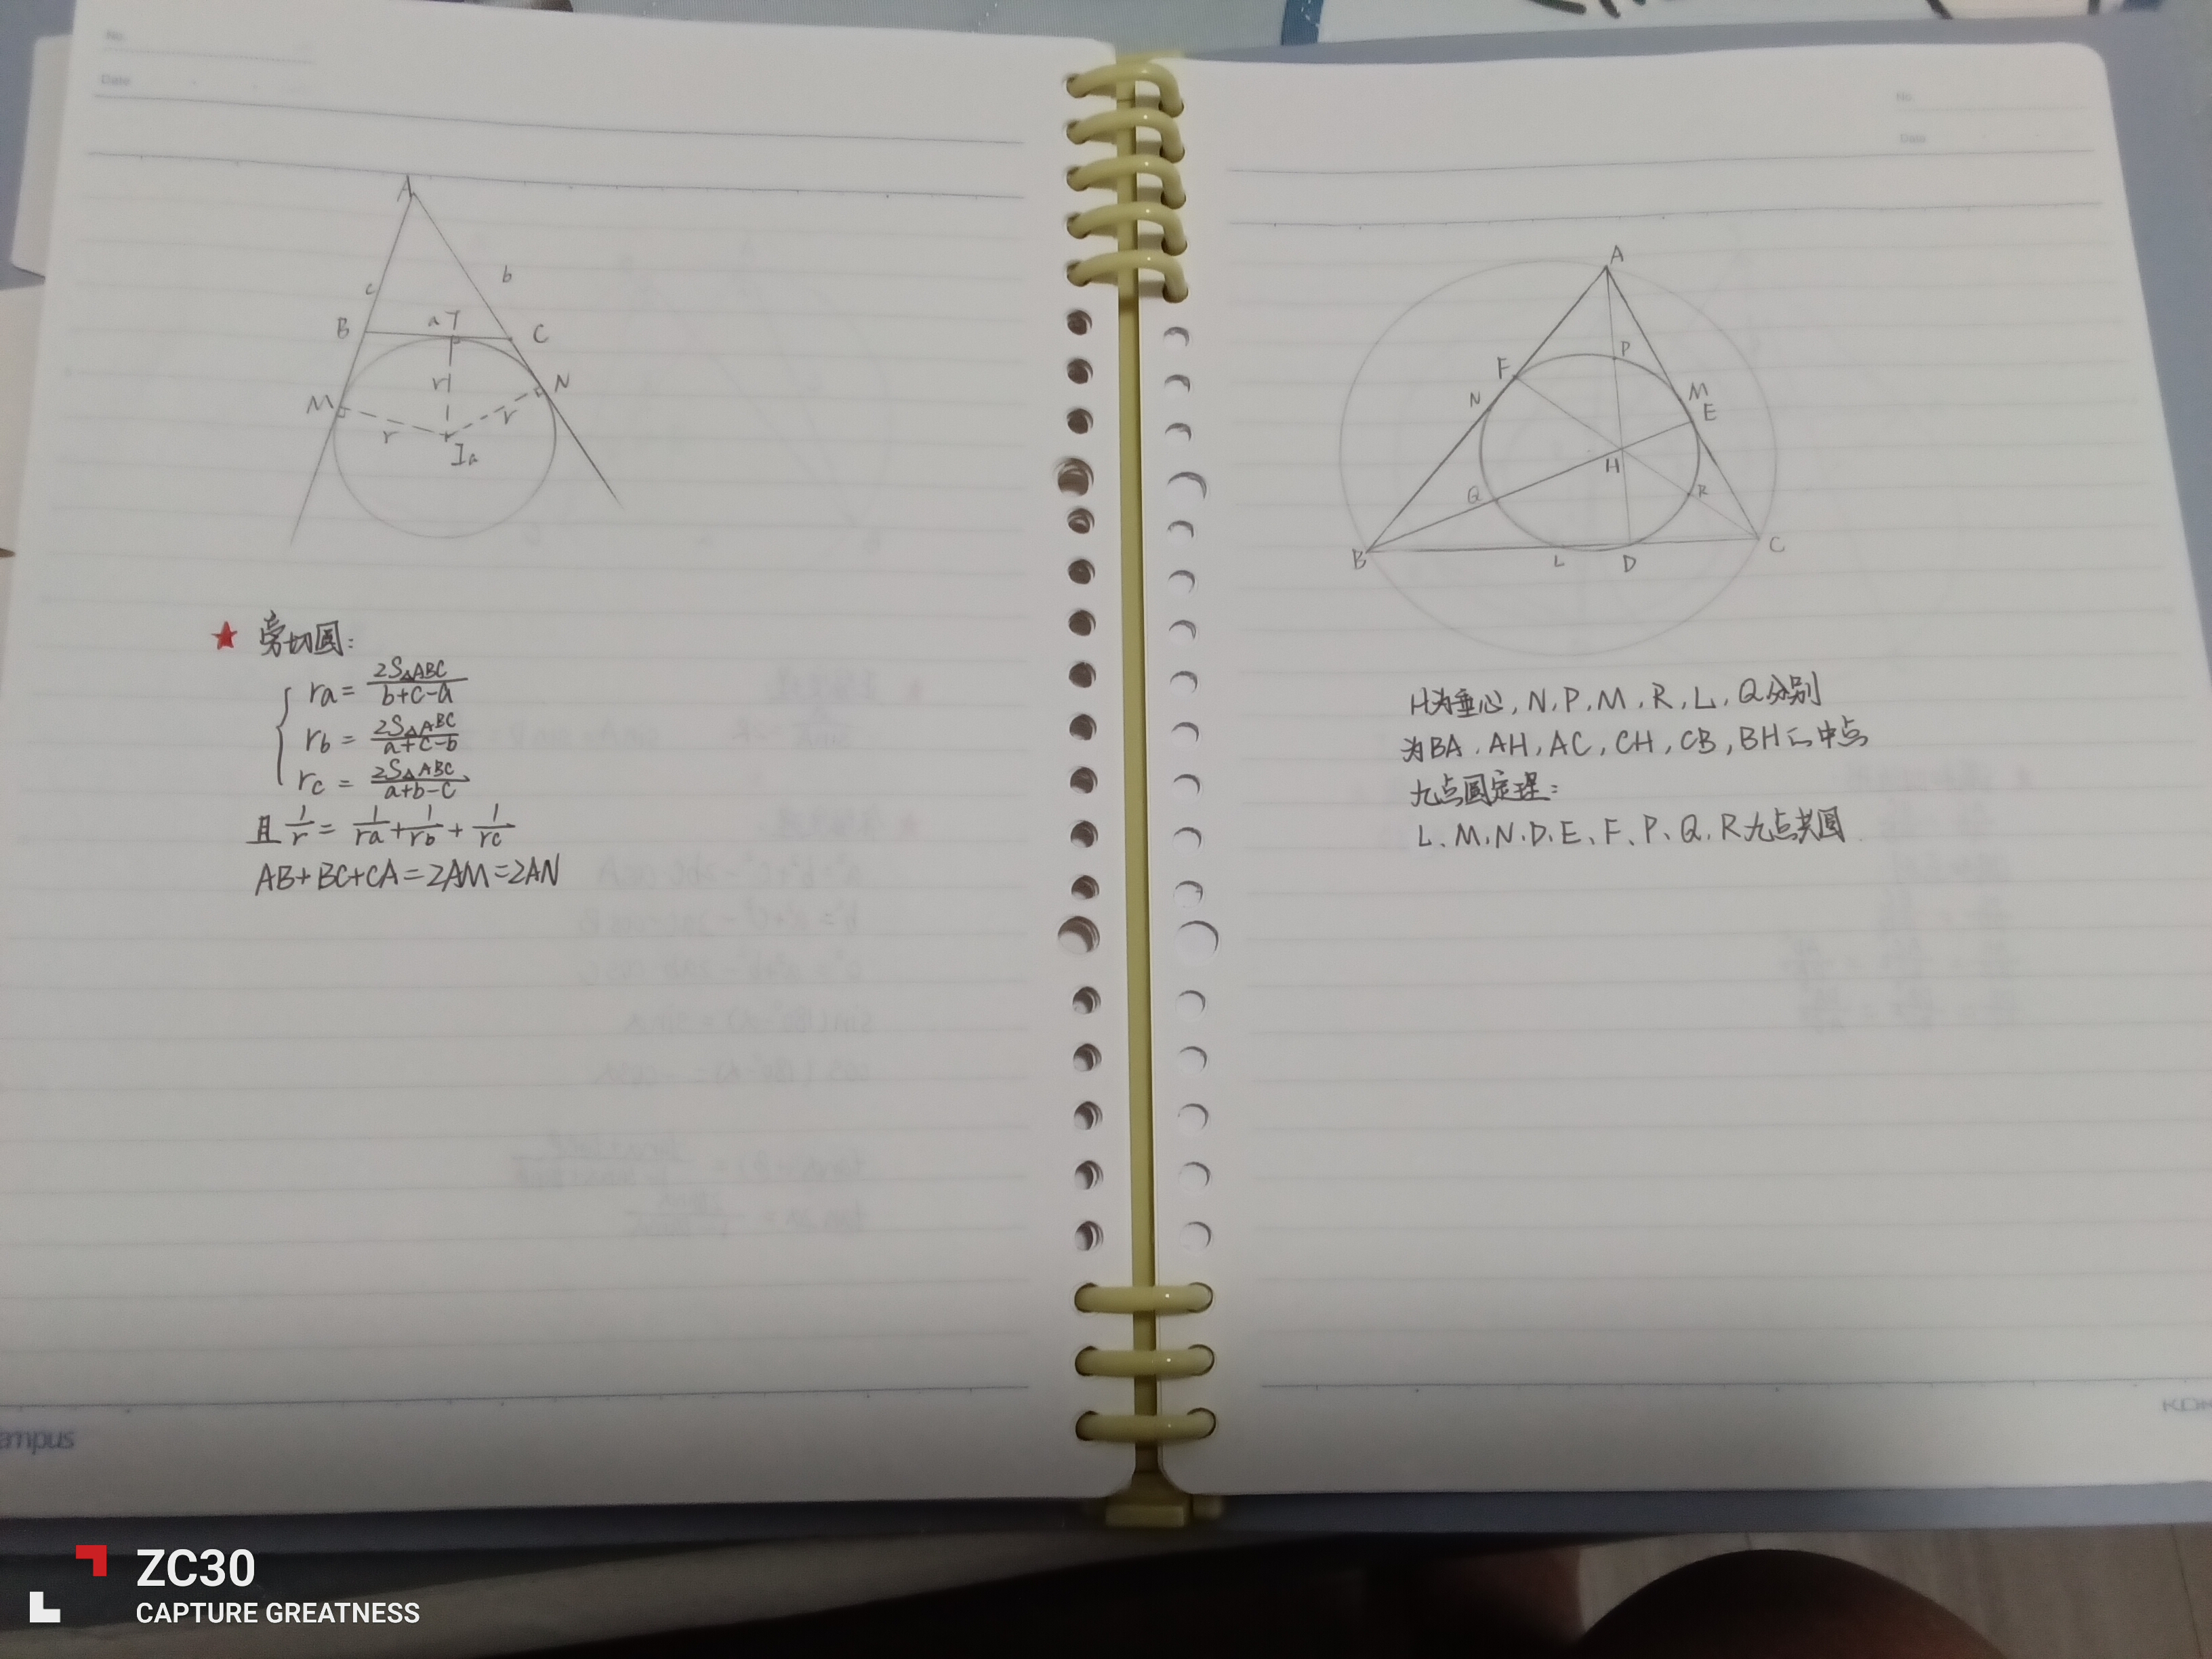 No.
Date
A
c
b
B
a T
C
r
M
N
r
r
Ia
★ 旁切圆:
ra = 2S△ABC / b+c-a
rb = 2S△ABC / a+c-b
rc = 2S△ABC / a+b-c
且 1/r = 1/ra + 1/rb + 1/rc
AB+BC+CA=2AM=2AN
ampus
No.
Date
A
F
P
N
M
E
H
Q
R
B
L
D
C
H为垂心, N, P, M, R, L, Q分别
为BA, AH, AC, CH, CB, BH的中点
九点圆定理:
L、M、N、D、E、F、P、Q、R九点共圆
KOK
ZC30
CAPTURE GREATNESS